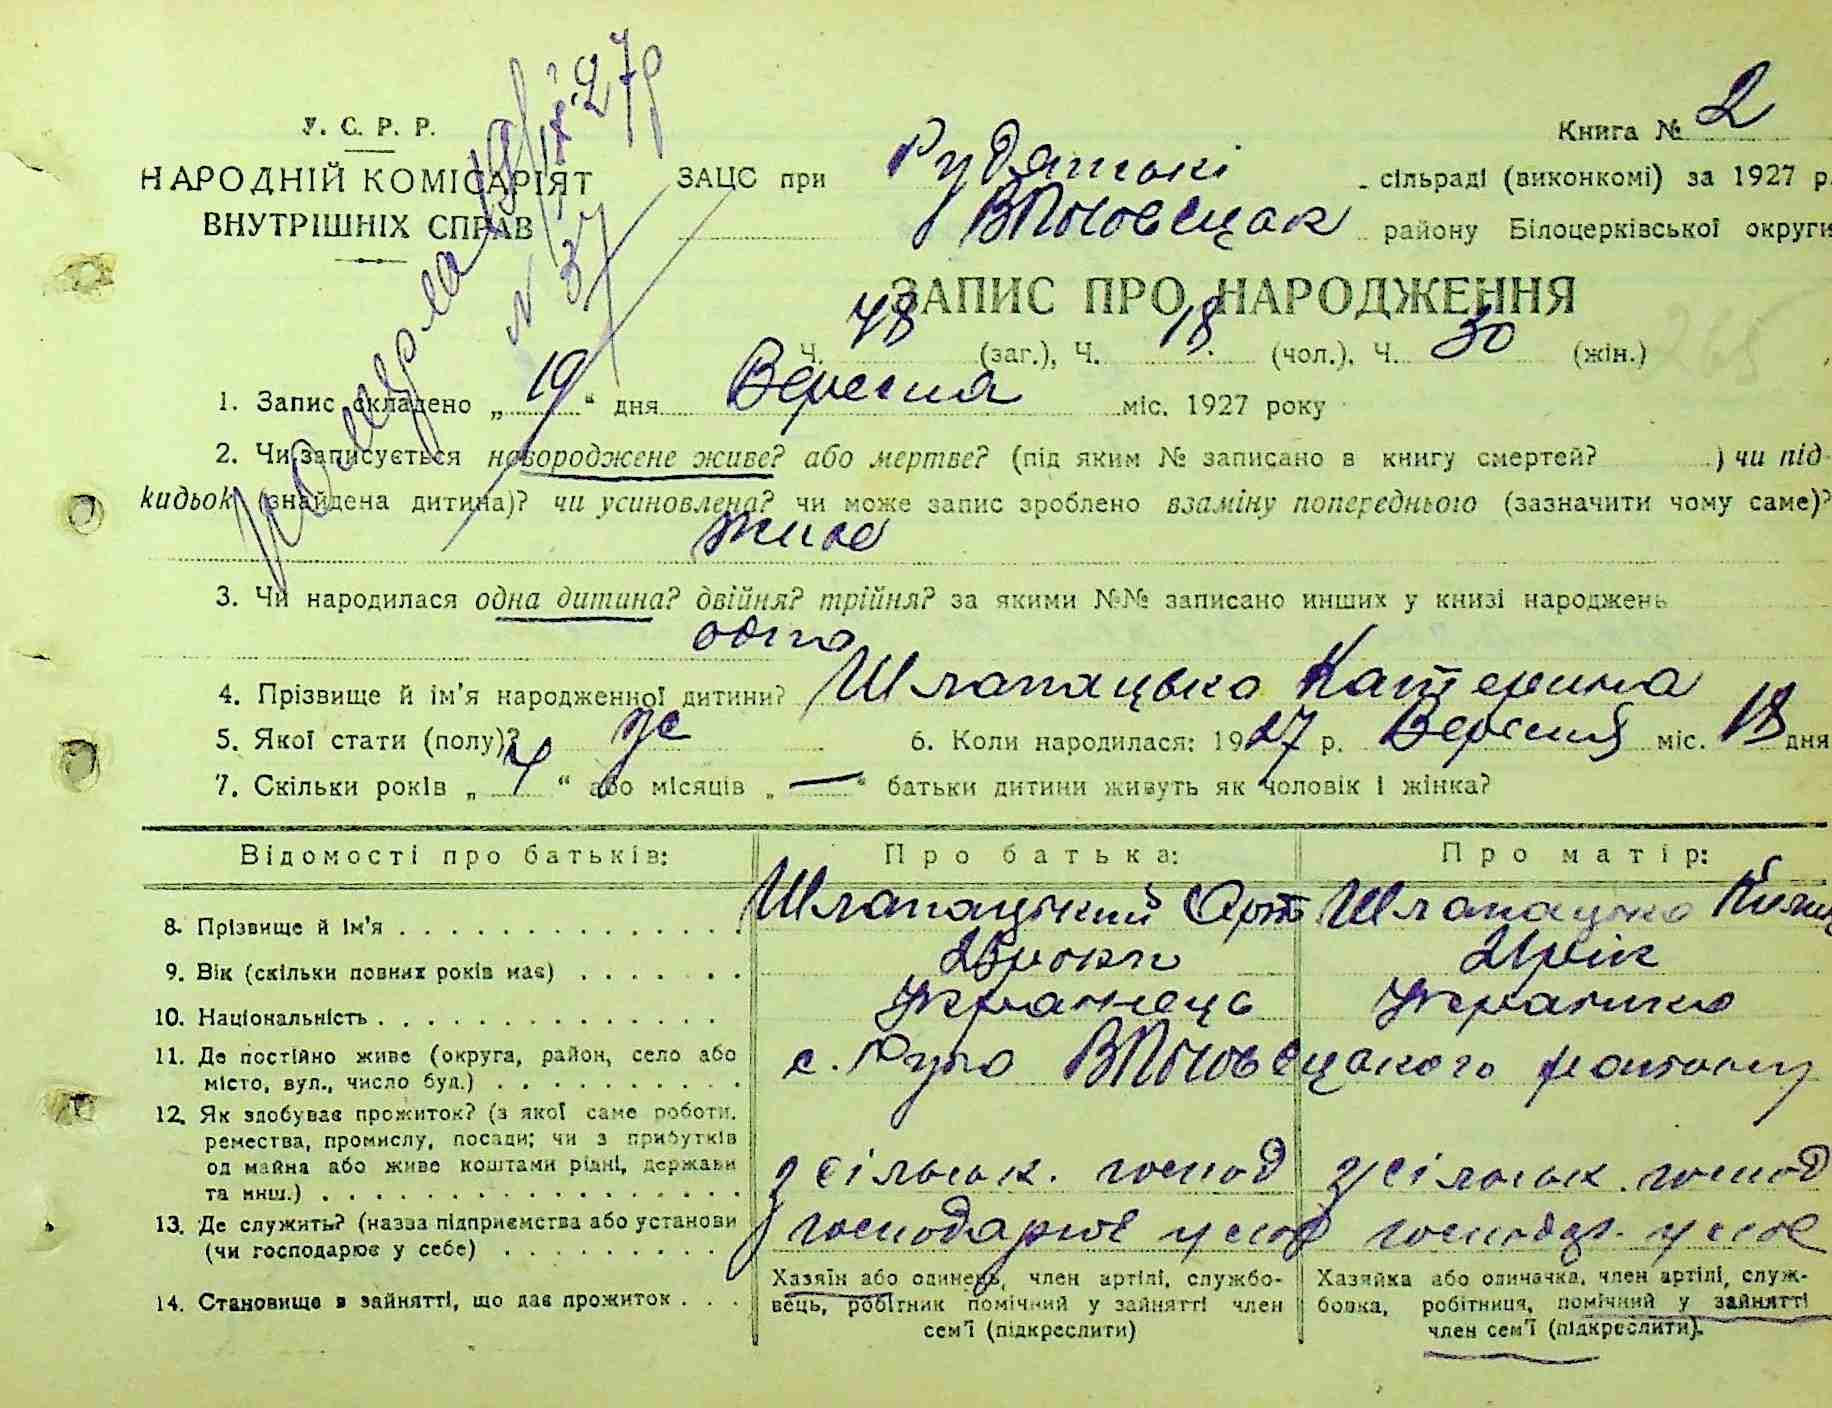 У. С. Р. Р.
НАРОДНІЙ КОМІСАРІЯТ
ВНУТРІШНІХ СПРАВ
померла 19/ІХ 27р
N 37
Книга № 2
ЗАЦС при Рудянські сільраді (виконкомі) за 1927 р.
району Білоцерківської округи
ЗАПИС ПРО НАРОДЖЕННЯ
Ч. 48 (заг.), Ч. 18 (чол.), Ч. 30 (жін.)
1. Запис складено „ 19 “ дня Вересня міс. 1927 року
2. Чи записується новороджене живе? або мертве? (під яким № записано в книгу смертей? ) чи під-
кидьок (знайдена дитина)? чи усиновлена? чи може запис зроблено взаміну попереднього (зазначити чому саме)?
живе
3. Чи народилася одна дитина? двійня? трійня? за якими №№ записано инших у книзі народжень
одна
4. Прізвище й ім'я народженної дитини? Шлапацька Катерина
5. Якої стати (полу)? ж 6. Коли народилася: 1927 р. Вересня міс. 18 дня
7. Скільки років „ 4 “ або місяців „ — “ батьки дитини живуть як чоловік і жінка?
Відомості про батьків: Про батька: Про матір:
8. Прізвище й ім'я Шлапацький Шлапацька
9. Вік (скільки повних років має) роки рік
10. Національність Українець Українка
11. Де постійно живе (округа, район, село або
місто, вул., число буд.) с. Руда району
12. Як здобуває прожиток? (з якої саме роботи,
ремества, промислу, посади; чи з прибутків
од майна або живе коштами рідні, держави
та инш.) з сільськ. господ з сільськ. господ
13. Де служить? (назва підприємства або установи
(чи господарює у себе) господарює у себе господар. у себе
14. Становище в зайнятті, що дає прожиток
Хазяїн або одинець, член артілі, службо-
вець, робітник помічний у зайнятті член
сем'ї (підкреслити)
Хазяйка або одиначка, член артілі, служ-
бовка, робітниця, помічний у зайнятті
член сем'ї (підкреслити).